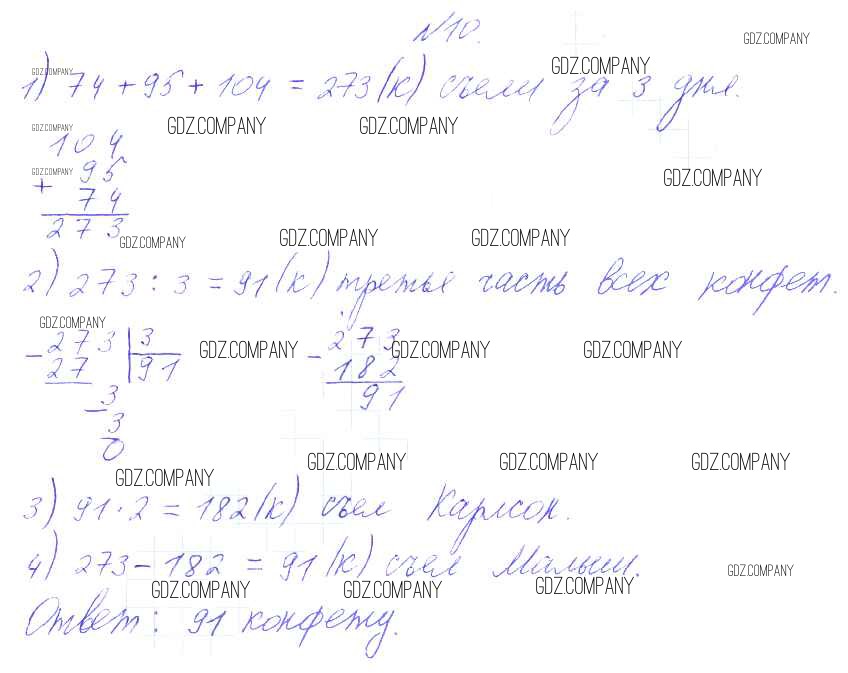 №10.
GDZ.COMPANY
GDZ.COMPANY
GDZ.COMPANY
1) 74 + 95 + 104 = 273 (к) съели за 3 дня.
GDZ.COMPANY
GDZ.COMPANY
GDZ.COMPANY
104
GDZ.COMPANY
+ 95
GDZ.COMPANY
74
273
GDZ.COMPANY
GDZ.COMPANY
GDZ.COMPANY
2) 273 : 3 = 91 (к) третья часть всех конфет.
GDZ.COMPANY
- 273 | 3 - 273
GDZ.COMPANY
GDZ.COMPANY
GDZ.COMPANY
27 | 91 182
- 3 91
3
0
GDZ.COMPANY
GDZ.COMPANY
GDZ.COMPANY
GDZ.COMPANY
3) 91 · 2 = 182 (к) съел Карлсон.
4) 273 - 182 = 91 (к) съел Малыш.
GDZ.COMPANY
GDZ.COMPANY
GDZ.COMPANY
GDZ.COMPANY
Ответ: 91 конфету.